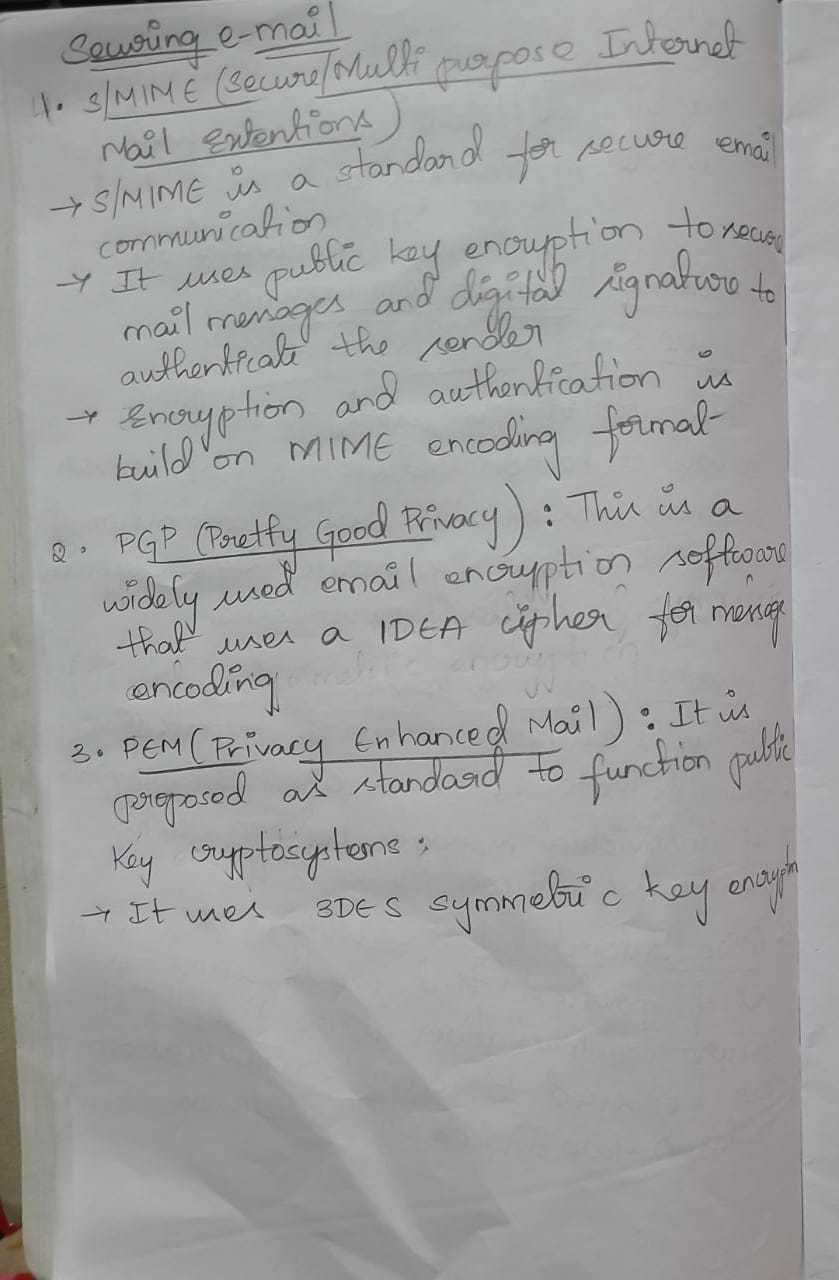 Securing e-mail
1. S/MIME (Secure/Multi purpose Internet
Mail Extentions)
→ S/MIME is a standard for secure email
communication
→ It uses public key encryption to secure
mail messages and digital signature to
authenticate the sender
→ Encryption and authentication is
build on MIME encoding format
2. PGP (Pretty Good Privacy) : This is a
widely used email encryption software
that uses a IDEA cipher for message
encoding
3. PEM (Privacy Enhanced Mail) : It is
proposed as standard to function public
Key cryptosystems :
→ It uses 3DES symmetric key encryptn